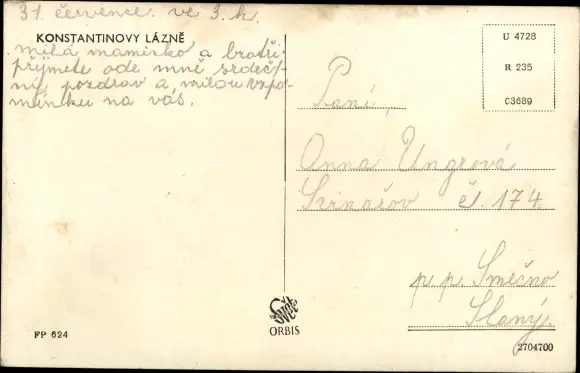 31 července. ve 3. h.
KONSTANTINOVY LÁZNĚ
milá maminko a bratři.
přijmete ode mně srdeč-
ný pozdrav a milou vzpo-
mínku na vás.
U 4728
R 235
03689
Paní,
Anna Ungrová
čl. 174.
p. p. Smečno
Slaný.
Svět
ORBIS
FP 624
2704700